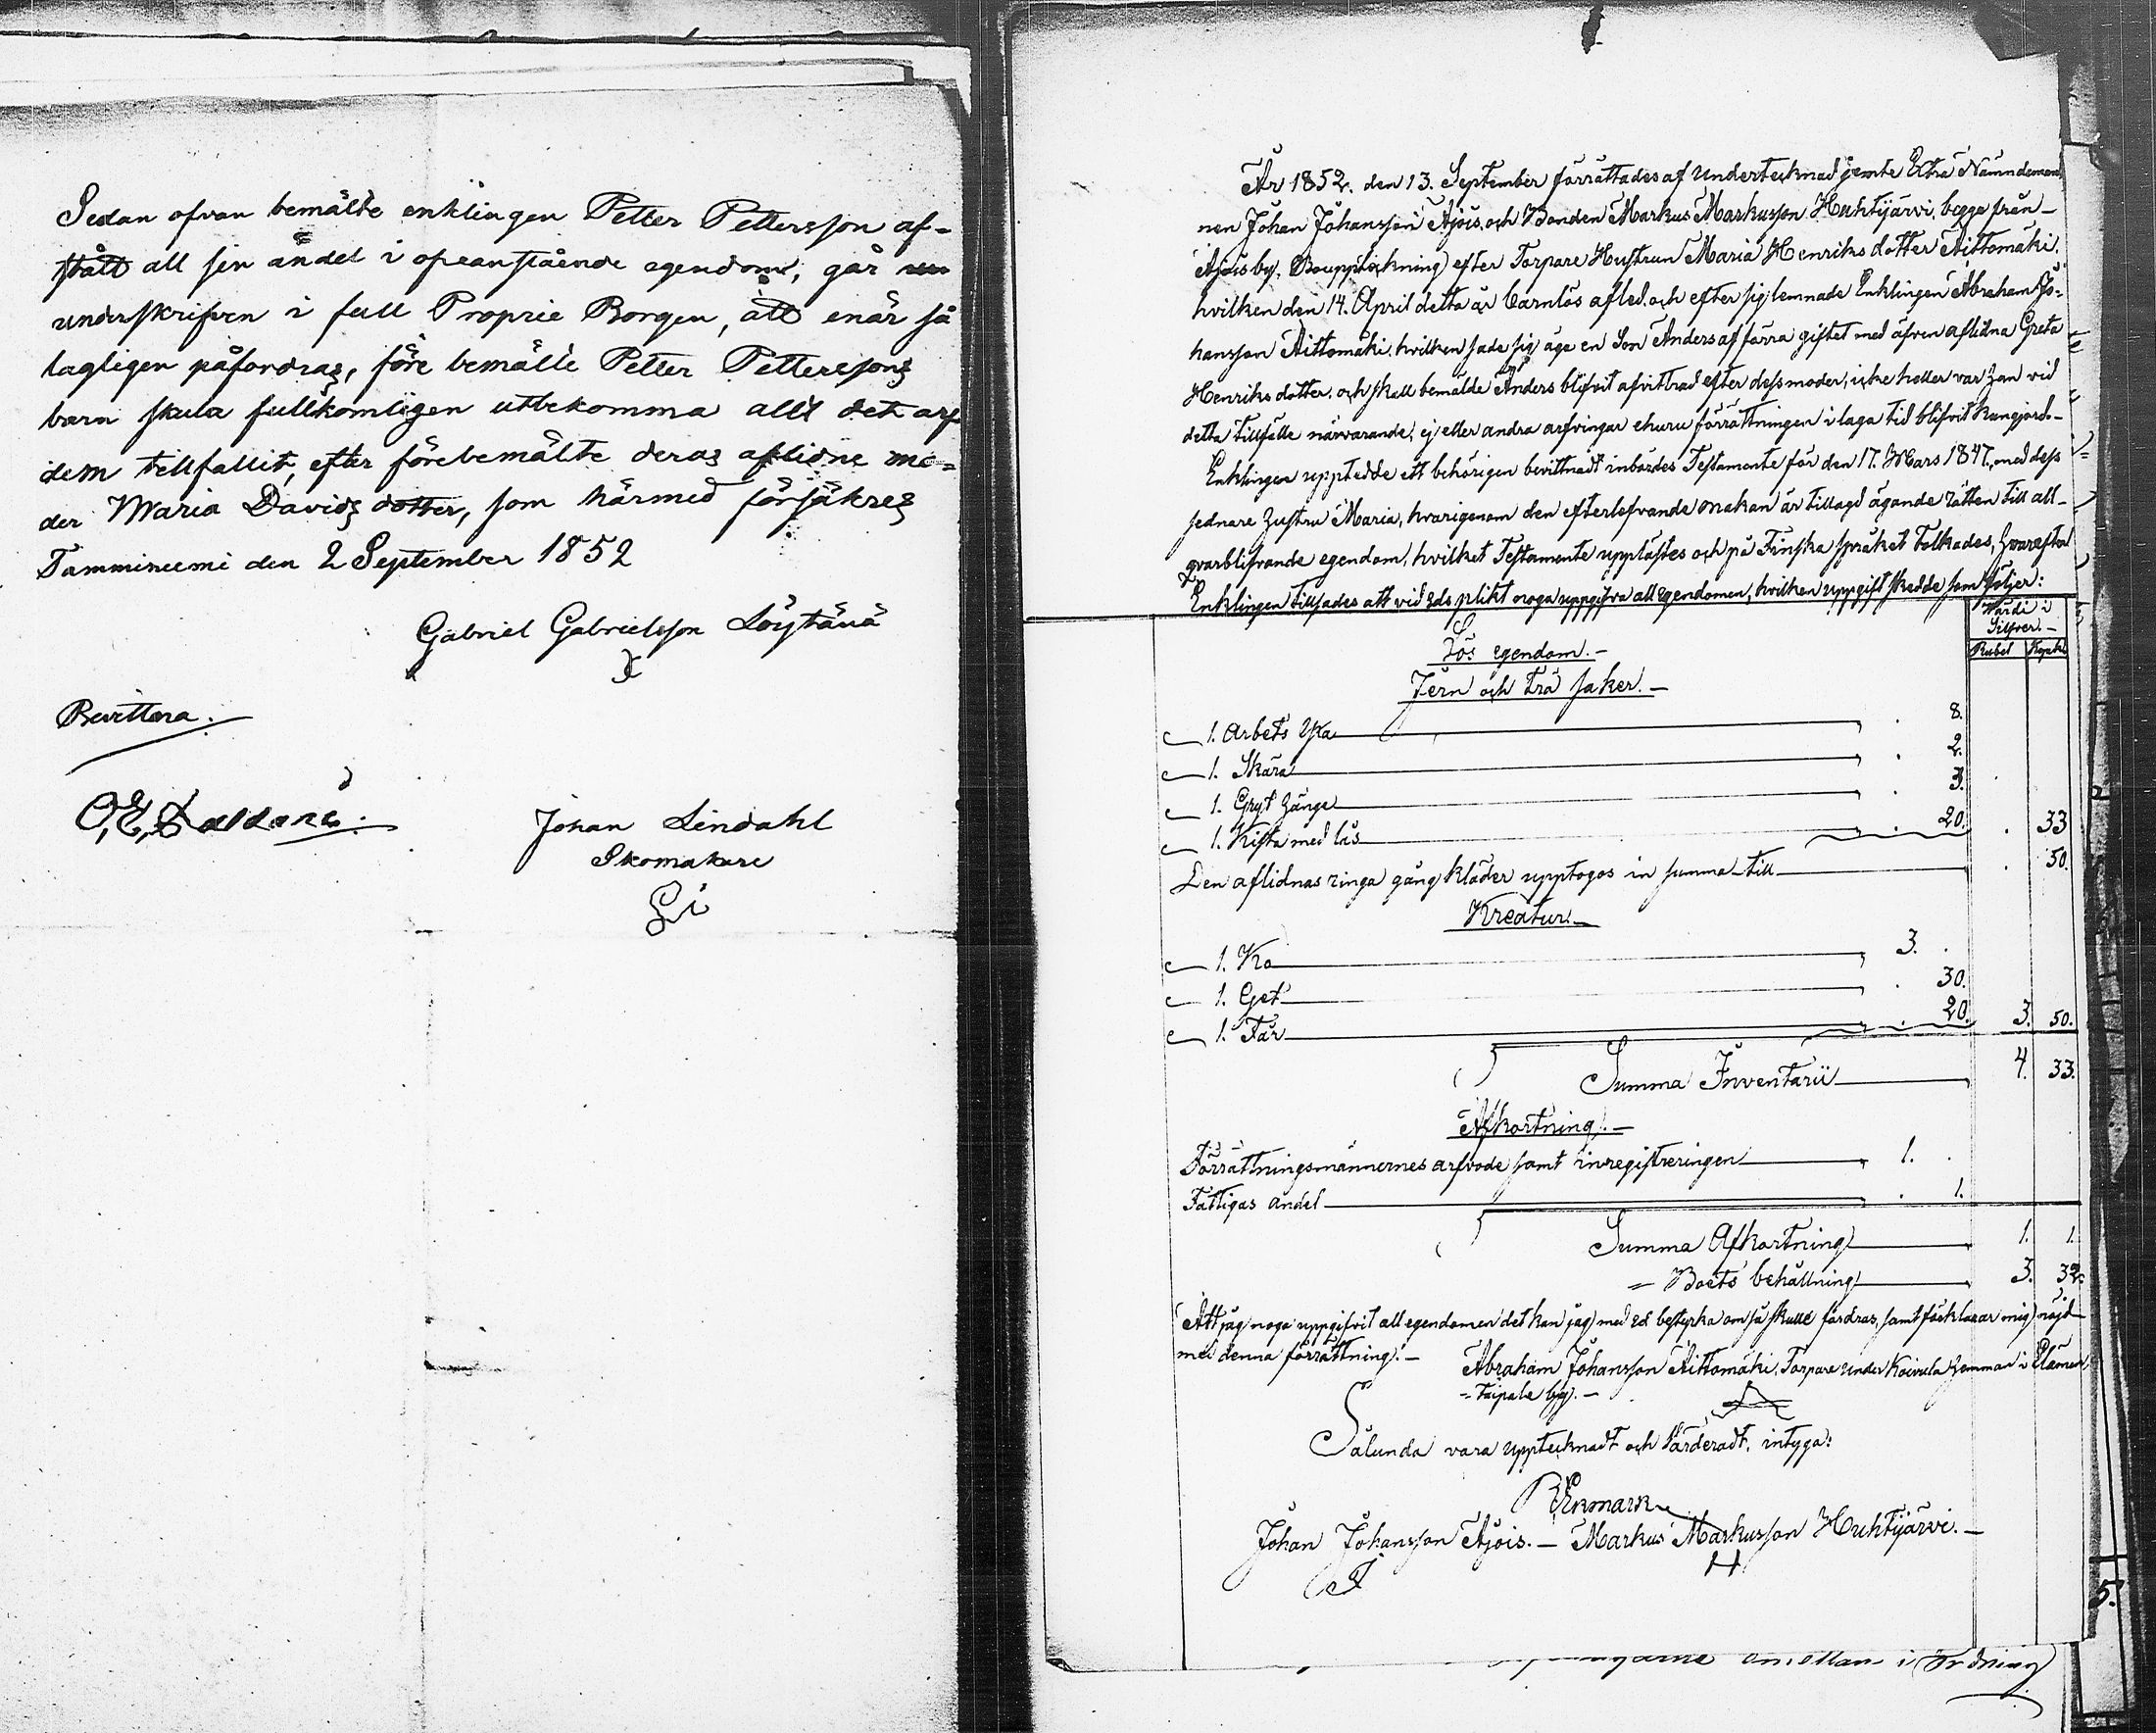 Sedan ofvan bemälte enklingen Petter Pettersson af-
stått all sin andel i ofvanstående egendom, går
underskrifven i full Proprie Borgen, att enär så
lagligen påfordras, före bemälte Petter Petterssons
barn skula fullkomligen utbekomma allt det arf
dem tillfallit, efter förebemälte deras aflidne mo-
der Maria Davids dotter, som härmed försäkres
Tammineemi den 2 September 1852
Gabriel Gabrielsson Löytänä
Bevittna.
Johan Lindahl
Skomakare
År 1852. den 13. September förrättades af undertecknad jemte Extra Nämndeman-
nen Johan Johansson Ajois och Bonden Markus Markusson Huhtijärvi, begge från
Ajois by, Bouppteckning efter Torpare Hustrun Maria Henriks dotter Aittomäki,
hvilken den 14. April detta år barnlös afled och efter sig lemnade Enklingen Abraham Jo-
hansson Aittomäki, hvilken sade sig äga en Son Anders af förra giftet med äfven aflidna Greta
Henriks dotter, och skall bemälde Anders blifvit afvittrad efter dess moder, icke heller var han vid
detta tillfälle närvarande, ej eller andra arfvingar ehuru förrättningen i laga tid blifvit kungjord.-
Enklingen upptedde ett behörigen bevittnadt inbördes Testamente för den 17. Mars 1847, med dess
sednare hustru Maria, hvarigenom den efterlefvande makan är tillagd ägande rätten till all
qvarblifvande egendom, hvilket Testamente upplästes och på Finska språket tolkades, hvarefter
Enklingen tillsades att vid Eds plikt noga uppgifva all egendomen, hvilken uppgift skedde som följer:
Värdi i
Silfver.-
Rubel Kopek
Lös egendom.-
Jern och trä saker.-
1. Arbets Yxa 8.
1. Skära 2.
1. Gryt hänge 3.
1. Kista med lås 20. 33
Den aflidnas ringa gång kläder upptogos in summa till 50.
Kreatur.-
1. Ko 3.
1. Get 30.
1. Får 20. 3. 50.
Summa Inventarii 4. 33.
Afkortning.-
Förrättningsmännernes arfvode samt inregistreringen 1.
Fattigas andel 1.
Summa Afkortning 1. 1.
= Boets behållning 3. 32.
Att jag noga uppgifvit all egendomen det kan jag med Ed bestyrka om så skulle fördras, samt förklarar mig nöjd
med denna förrättning.- Abraham Johansson Aittomäki, Torpare under Koivula hemman i
Taipale by.-
Sålunda vara upptecknadt och Värderadt, intyga:
Ekmark
Johan Johansson Ajois.- Markus Markusson Huhtijärvi.-
5.
emellan i Ordning